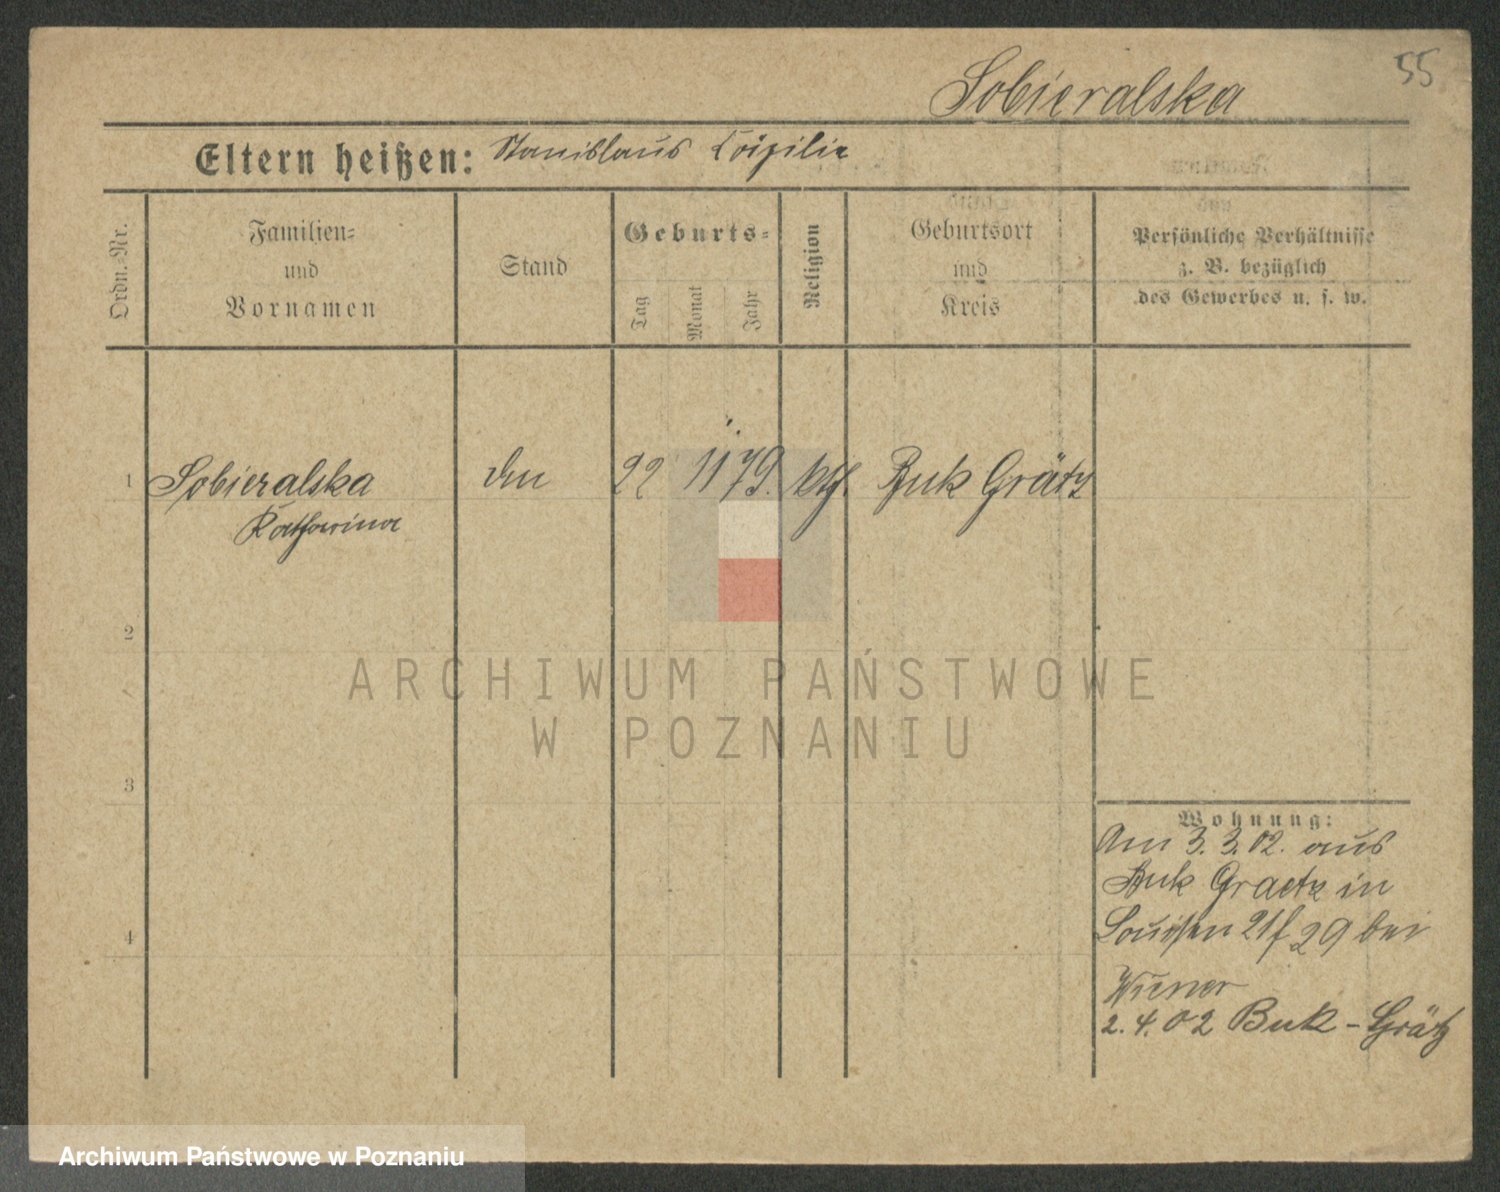 55
Sobieralska
Eltern heißen: Stanislaus Cäzilie
Ordn.-Nr.
Familien-
und
Vornamen
Stand
Geburts-
Tag
Monat
Jahr
Religion
Geburtsort
und
Kreis
Persönliche Verhältnisse
z. B. bezüglich
des Gewerbes u. s. w.
1 Sobieralska 22 11 79. kth. Buk Grätz
Katharina
2
ARCHIWUM PAŃSTWOWE
W POZNANIU
3
4
Wohnung:
Am 3.3.02. aus
Buk Graetz in
Louisen 29 bei
Wiener
2.4.02 Buk-Grätz
Archiwum Państwowe w Poznaniu